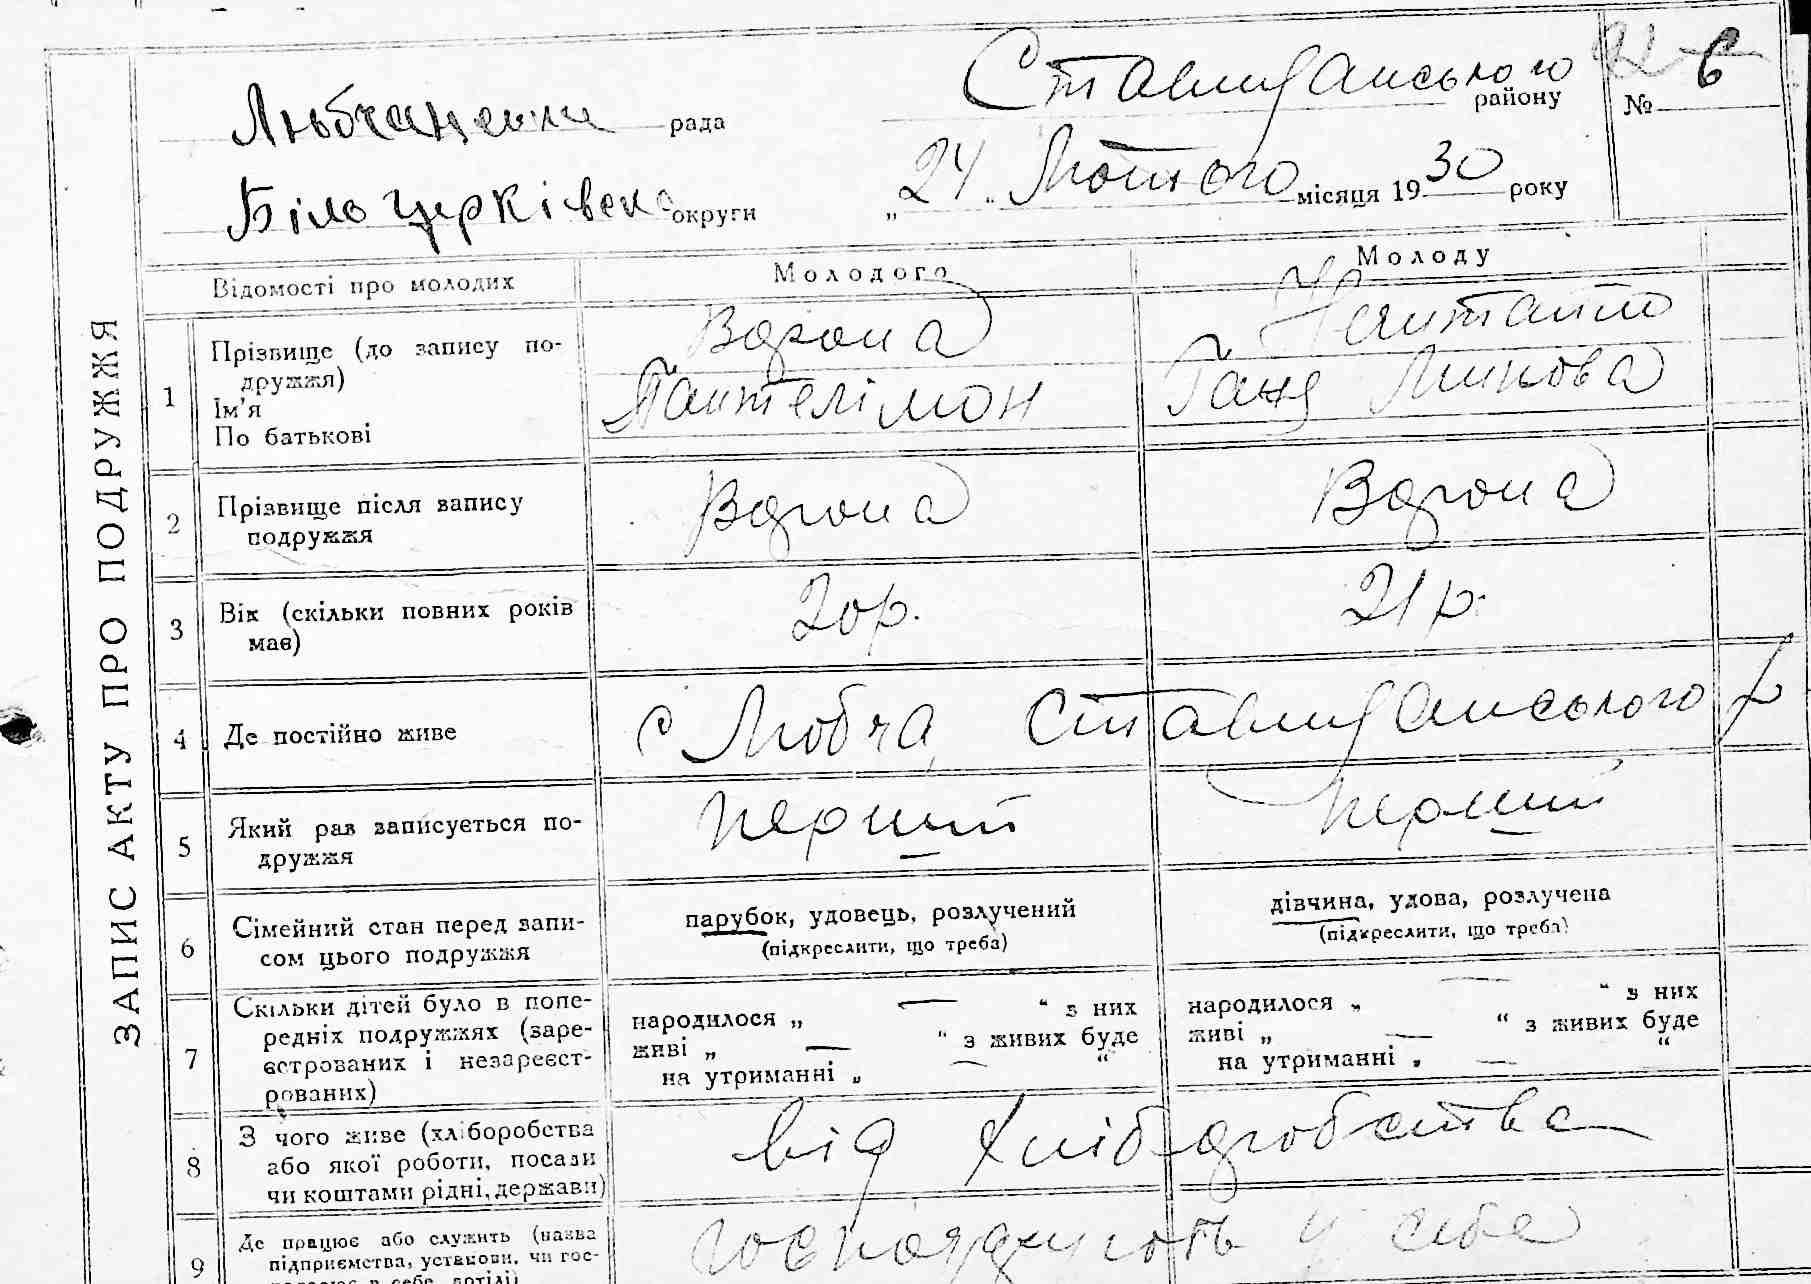 ЗАПИС АКТУ ПРО ПОДРУЖЖЯ
Ставищанського району № 6
рада
Білоцерківска округи „24„ Лютого місяця 1930 року
Відомості про молодих Молодого Молоду
1 Прізвище (до запису по-
дружжя)
Ім’я
По батькові
Ворона
Пантелімон Ганя
2 Прізвище після запису
подружжя
Ворона Ворона
3 Вік (скільки повних років
має)
20р. 21р.
4 Де постійно живе с Любча, Ставищанського р
5 Який раз записується по-
дружжя
перший перший
6 Сімейний стан перед запи-
сом цього подружжя
парубок, удовець, розлучений дівчина, удова, розлучена
(підкреслити, що треба) (підкреслити, що треба)
7 Скільки дітей було в попе-
редніх подружжях (заре-
єстрованих і незареєст-
рованих)
народилося „ — “ з них народилося „ — “ з них
живі „ — “ з живих буде живі „ — “ з живих буде
на утриманні „ — “ на утриманні „ — “
8 З чого живе (хліборобства
або якої роботи, посади
чи коштами рідні, держави)
від хліборобства
9 Де працює або служить (назва
підприємства, установи, чи гос-
у себе